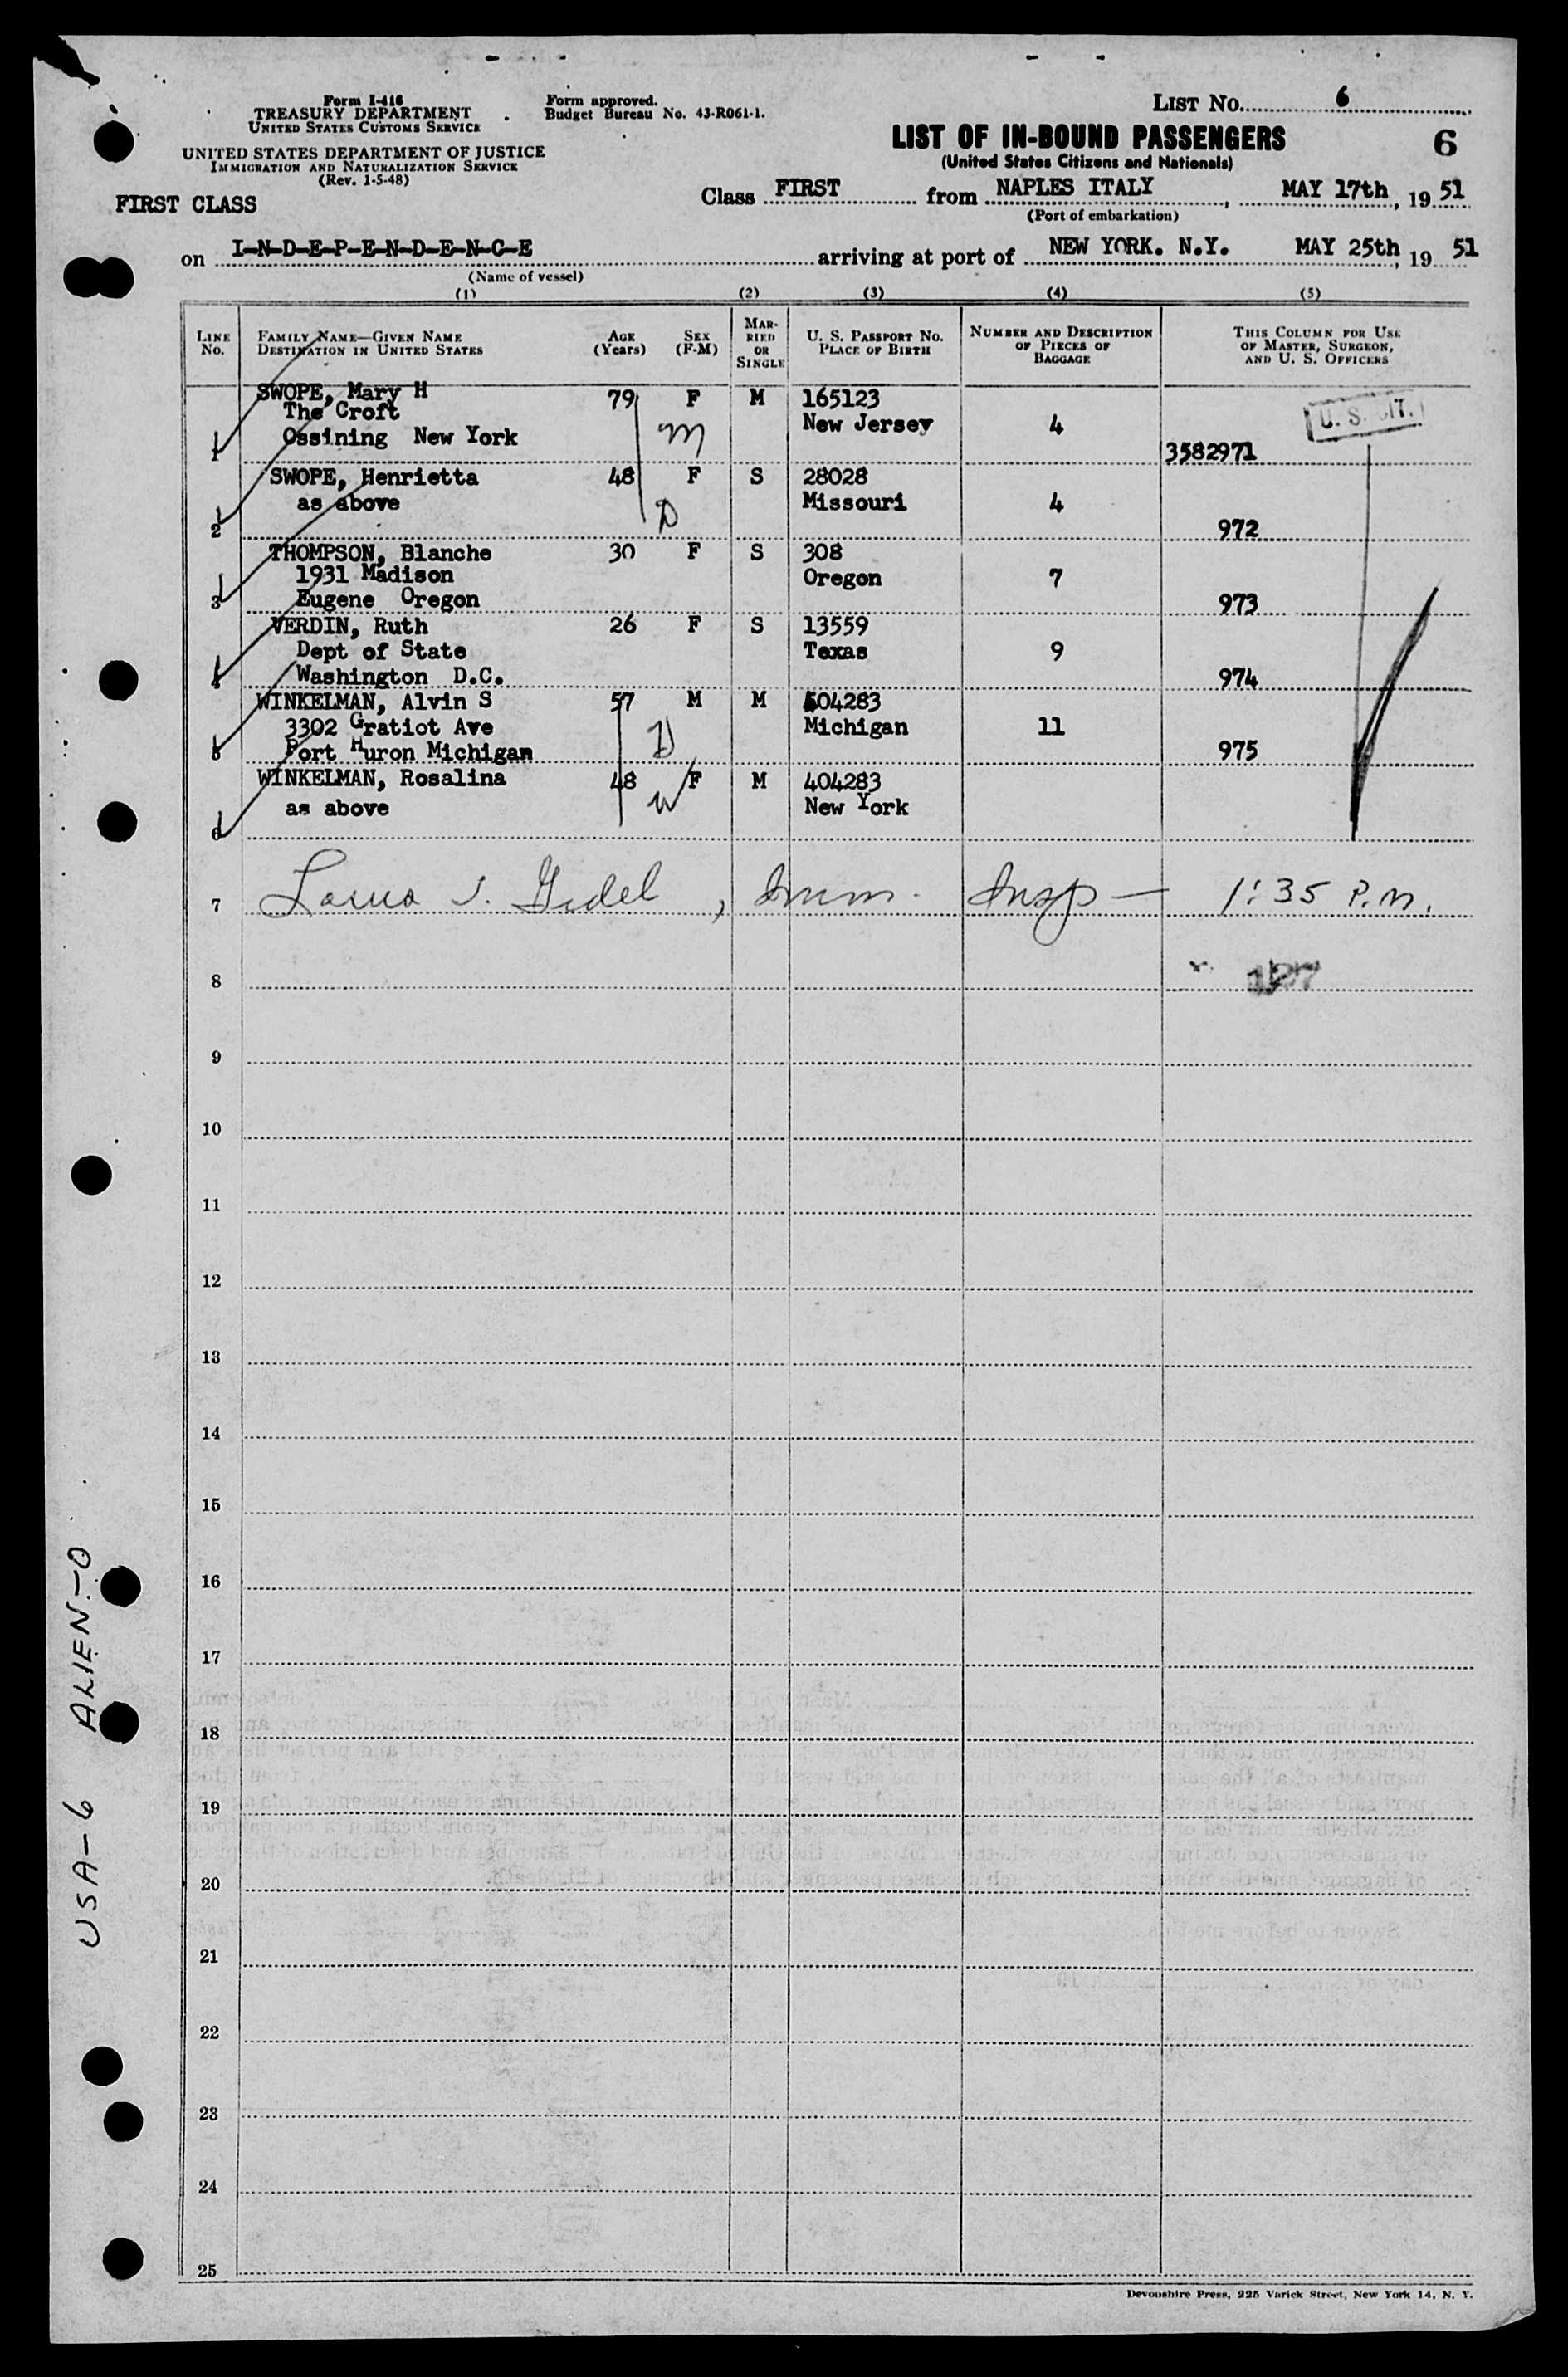 Form I-416
TREASURY DEPARTMENT
UNITED STATES CUSTOMS SERVICE
UNITED STATES DEPARTMENT OF JUSTICE
IMMIGRATION AND NATURALIZATION SERVICE
(Rev. 1-5-48)
FIRST CLASS
Form approved.
Budget Bureau No. 43-R061-1.
LIST No. 6
LIST OF IN-BOUND PASSENGERS 6
(United States Citizens and Nationals)
Class FIRST from NAPLES ITALY, MAY 17th, 1951
(Port of embarkation)
on I-N-D-E-P-E-N-D-E-N-C-E arriving at port of NEW YORK. N.Y. MAY 25th, 19 51
(Name of vessel)
(1) (2) (3) (4) (5)
LINE No. FAMILY NAME—GIVEN NAME DESTINATION IN UNITED STATES AGE (Years) SEX (F-M) MARRIED OR SINGLE U. S. PASSPORT No. PLACE OF BIRTH NUMBER AND DESCRIPTION OF PIECES OF BAGGAGE THIS COLUMN FOR USE OF MASTER, SURGEON, AND U. S. OFFICERS
SWOPE, Mary H 79 F M 165123
The Croft New Jersey 4 U. S. CIT.
1 Ossining New York M 3582971
SWOPE, Henrietta 48 F S 28028
as above Missouri 4
2 D 972
THOMPSON, Blanche 30 F S 308
1931 Madison Oregon 7
3 Eugene Oregon 973
VERDIN, Ruth 26 F S 13559
Dept of State Texas 9
4 Washington D.C. 974
WINKELMAN, Alvin S 57 M M 404283
3302 Gratiot Ave Michigan 11
5 Port Huron Michigan H 975
WINKELMAN, Rosalina 48 F M 404283
as above W New York
6
7 Imm. Insp — 1:35 P.M.
8 127
9
10
11
12
13
14
15
16
17
18
19
20
21
22
23
24
25
USA-6 ALIEN-0
Devonshire Press, 225 Varick Street, New York 14, N. Y.